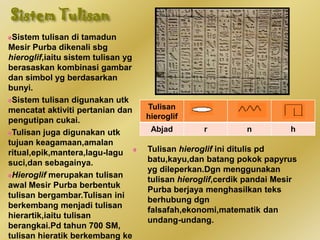 Sistem Tulisan
Sistem tulisan di tamadun
Mesir Purba dikenali sbg
hieroglif,iaitu sistem tulisan yg
berasaskan kombinasi gambar
dan simbol yg berdasarkan
bunyi.
Sistem tulisan digunakan utk
mencatat aktiviti pertanian dan
pengutipan cukai.
Tulisan juga digunakan utk
tujuan keagamaan,amalan
ritual,epik,mantera,lagu-lagu
suci,dan sebagainya.
Hieroglif merupakan tulisan
awal Mesir Purba berbentuk
tulisan bergambar.Tulisan ini
berkembang menjadi tulisan
hierartik,iaitu tulisan
berangkai.Pd tahun 700 SM,
tulisan hieratik berkembang ke
Tulisan
hieroglif
Abjad r n h
Tulisan hieroglif ini ditulis pd
batu,kayu,dan batang pokok papyrus
yg dileperkan.Dgn menggunakan
tulisan hieroglif,cerdik pandai Mesir
Purba berjaya menghasilkan teks
berhubung dgn
falsafah,ekonomi,matematik dan
undang-undang.